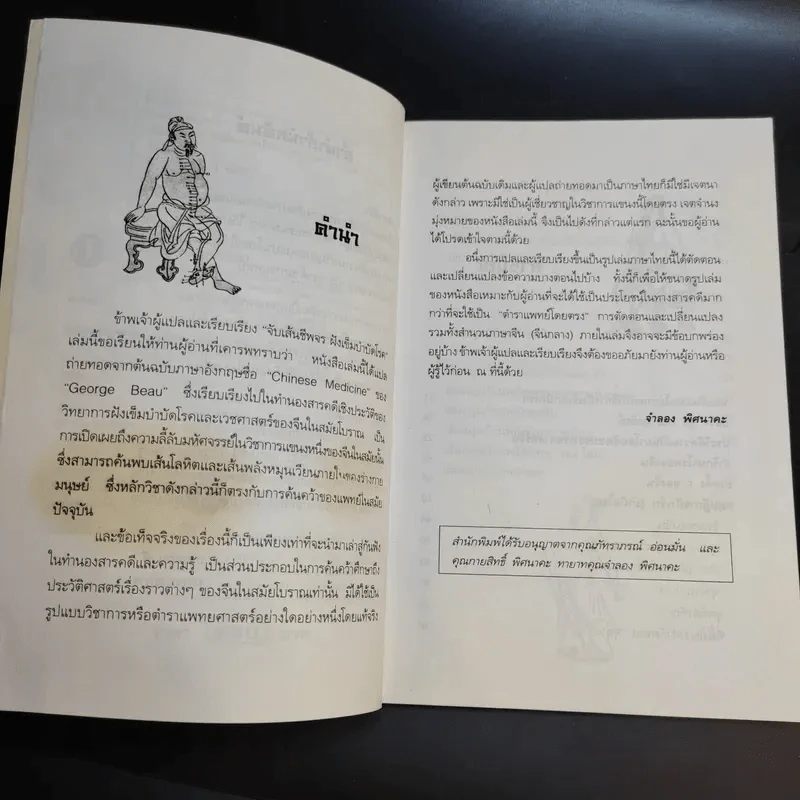 คำนำ
ข้าพเจ้าผู้แปลและเรียบเรียง "จับเส้นชีพจร ฝังเข็มบำบัดโรค"
เล่มนี้ขอเรียนให้ท่านผู้อ่านที่เคารพทราบว่า หนังสือเล่มนี้ได้แปล
ถ่ายทอดจากต้นฉบับภาษาอังกฤษชื่อ "Chinese Medicine" ของ
"George Beau" ซึ่งเรียบเรียงไปในทำนองสารคดีเชิงประวัติของ
วิทยาการฝังเข็มบำบัดโรคและเวชศาสตร์ของจีนในสมัยโบราณ เป็น
การเปิดเผยถึงความลี้ลับมหัศจรรย์ในวิชาการแขนงหนึ่งของจีนในสมัยนั้น
ซึ่งสามารถค้นพบเส้นโลหิตและเส้นพลังหมุนเวียนภายในของร่างกาย
มนุษย์ ซึ่งหลักวิชาดังกล่าวนี้ก็ตรงกับการค้นคว้าของแพทย์ในสมัย
ปัจจุบัน
และข้อเท็จจริงของเรื่องนี้ก็เป็นเพียงเท่าที่จะนำมาเล่าสู่กันฟัง
ในทำนองสารคดีและความรู้ เป็นส่วนประกอบในการค้นคว้าศึกษาถึง
ประวัติศาสตร์เรื่องราวต่างๆ ของจีนในสมัยโบราณเท่านั้น มิได้ใช้เป็น
รูปแบบวิชาการหรือตำราแพทยศาสตร์อย่างใดอย่างหนึ่งโดยแท้จริง
ผู้เขียนต้นฉบับเดิมและผู้แปลถ่ายทอดมาเป็นภาษาไทยก็มิใช่มีเจตนา
ดังกล่าว เพราะมิใช่เป็นผู้เชี่ยวชาญในวิชาการแขนงนี้โดยตรง เจตจำนง
มุ่งหมายของหนังสือเล่มนี้ จึงเป็นไปดังที่กล่าวแต่แรก ฉะนั้นขอผู้อ่าน
ได้โปรดเข้าใจตามนี้ด้วย
อนึ่งการแปลและเรียบเรียงขึ้นเป็นรูปเล่มภาษาไทยนี้ได้ตัดตอน
และเปลี่ยนแปลงข้อความบางตอนไปบ้าง ทั้งนี้ก็เพื่อให้ขนาดรูปเล่ม
ของหนังสือเหมาะกับผู้อ่านที่จะได้ใช้เป็นประโยชน์ในทางสารคดีมาก
กว่าที่จะใช้เป็น "ตำราแพทย์โดยตรง" การตัดตอนและเปลี่ยนแปลง
รวมทั้งสำนวนภาษาจีน (จีนกลาง) ภายในเล่มจึงอาจจะมีข้อบกพร่อง
อยู่บ้าง ข้าพเจ้าผู้แปลและเรียบเรียงจึงต้องขออภัยมายังท่านผู้อ่านหรือ
ผู้รู้ไว้ก่อน ณ ที่นี้ด้วย
จำลอง พิศนาคะ
สำนักพิมพ์ได้รับอนุญาตจากคุณภัทราภรณ์ อ่อนมั่น และ
คุณกายสิทธิ์ พิศนาคะ ทายาทคุณจำลอง พิศนาคะ